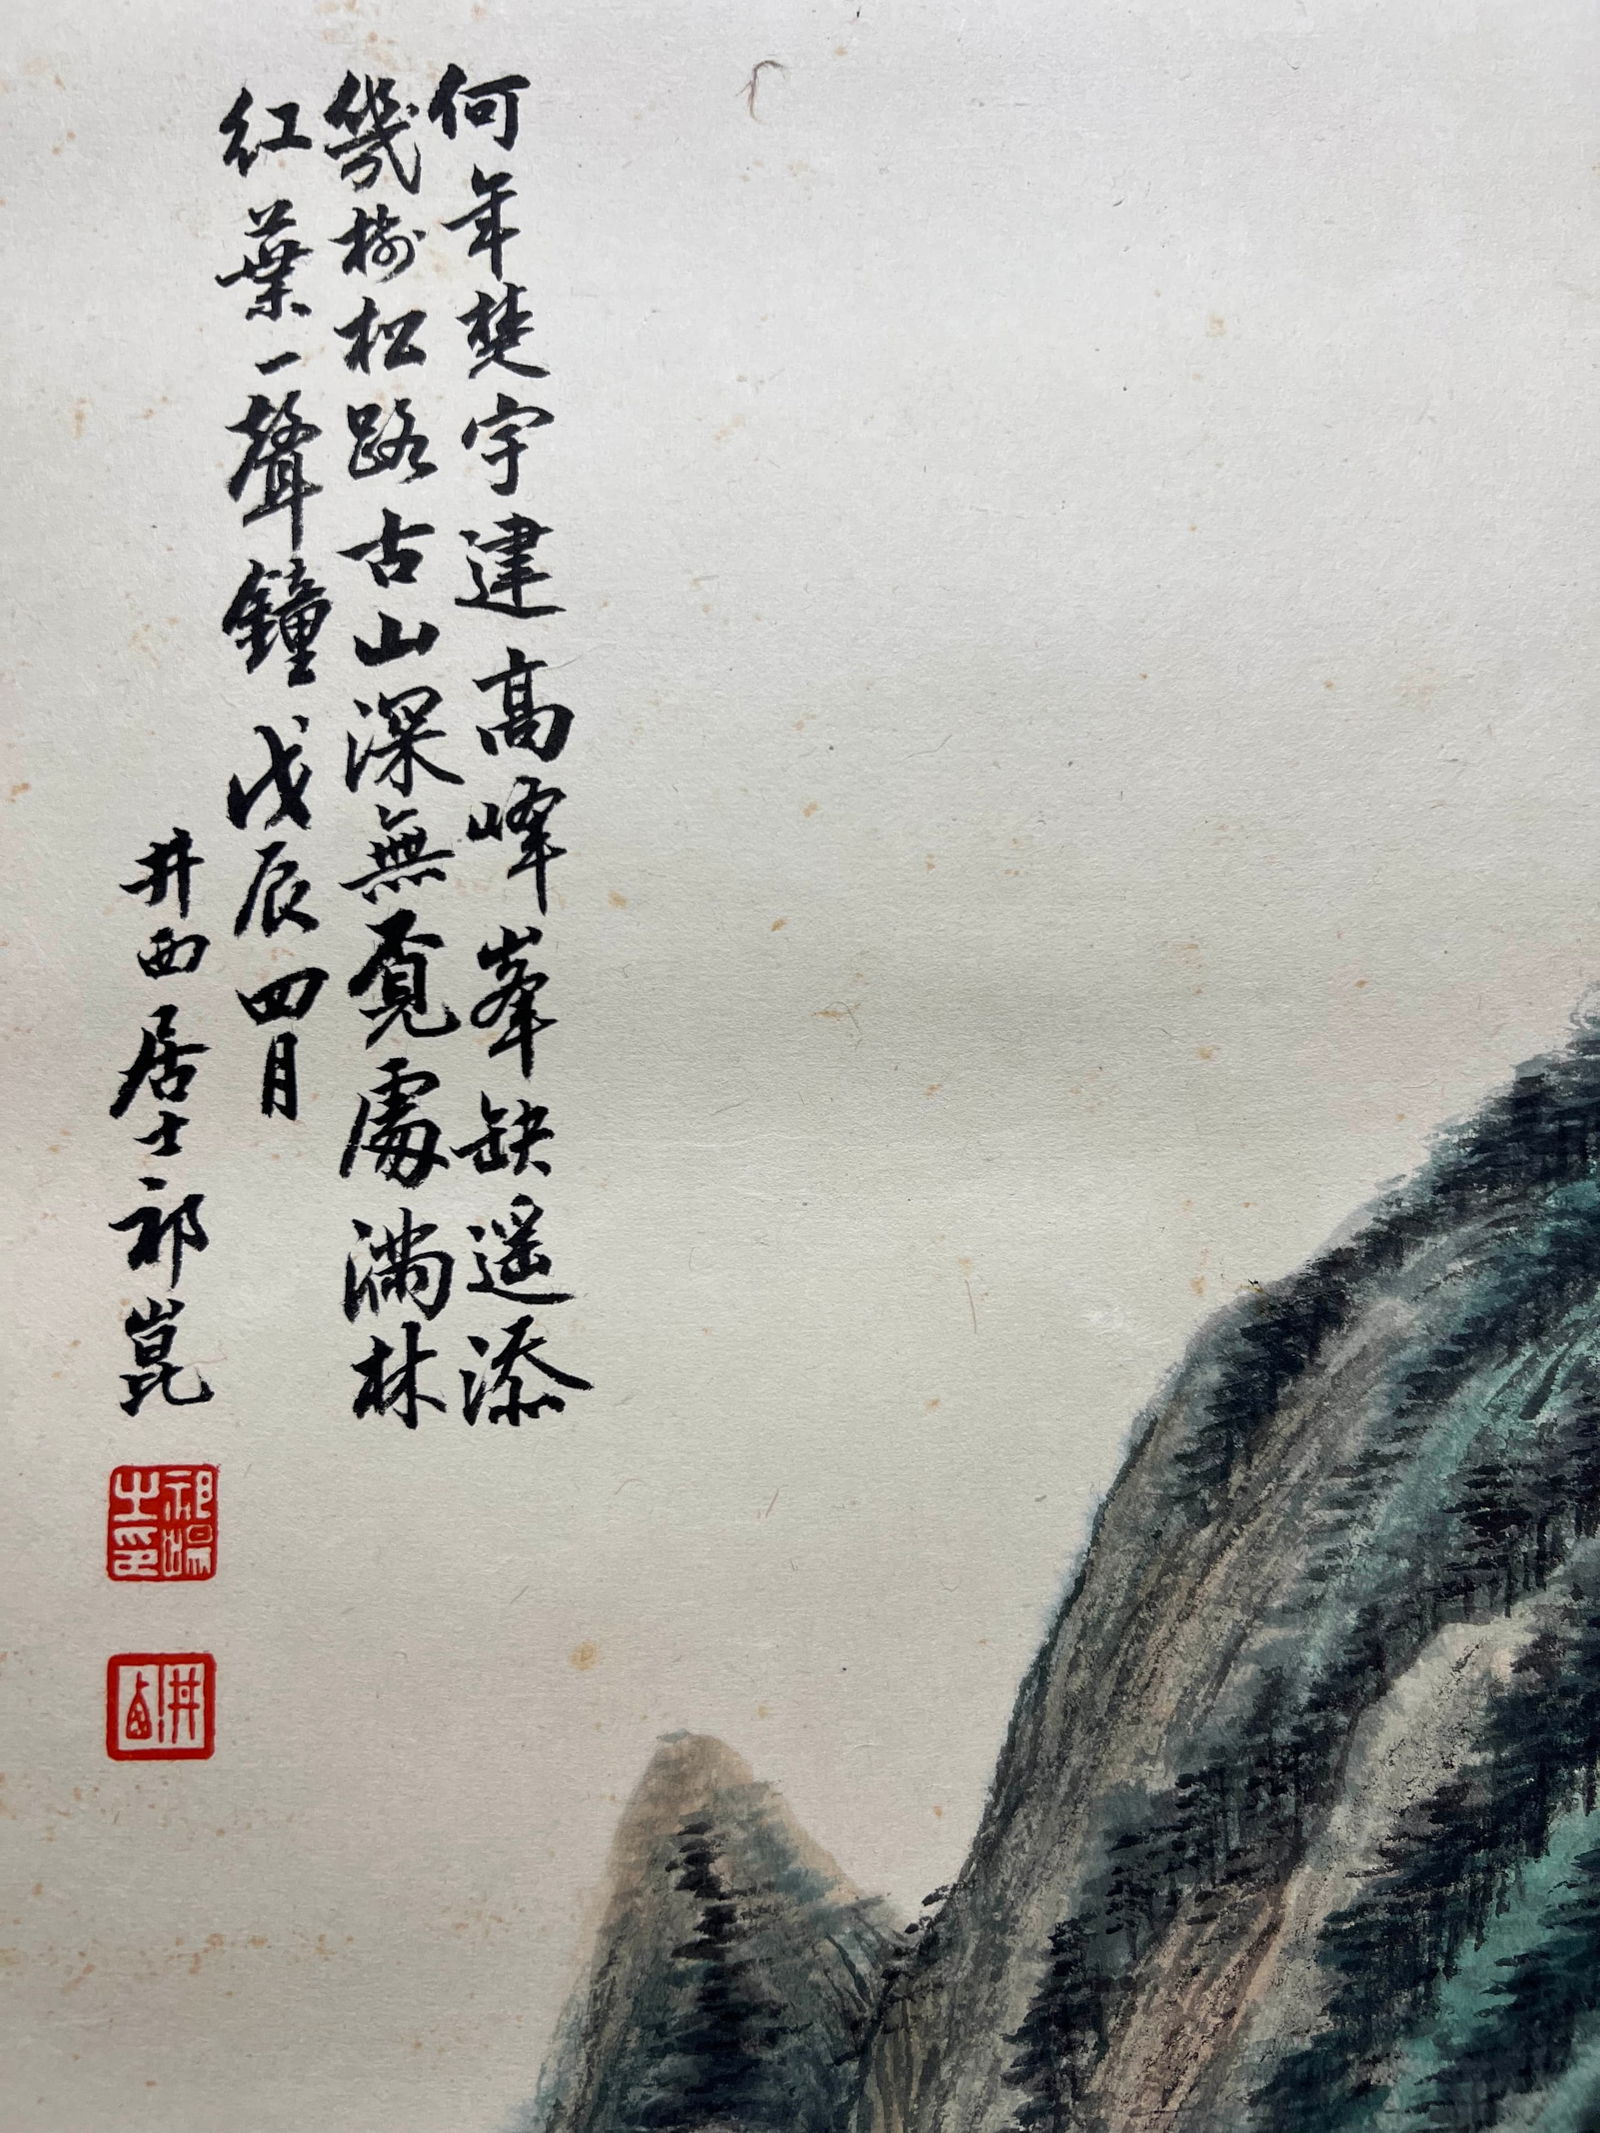 何年梵宇建高峰峯缺遥添
幾樹松路古山深無覓處滿林
紅葉一聲鐘戊辰四月
井西居士祁崑
祁崑之印
井西